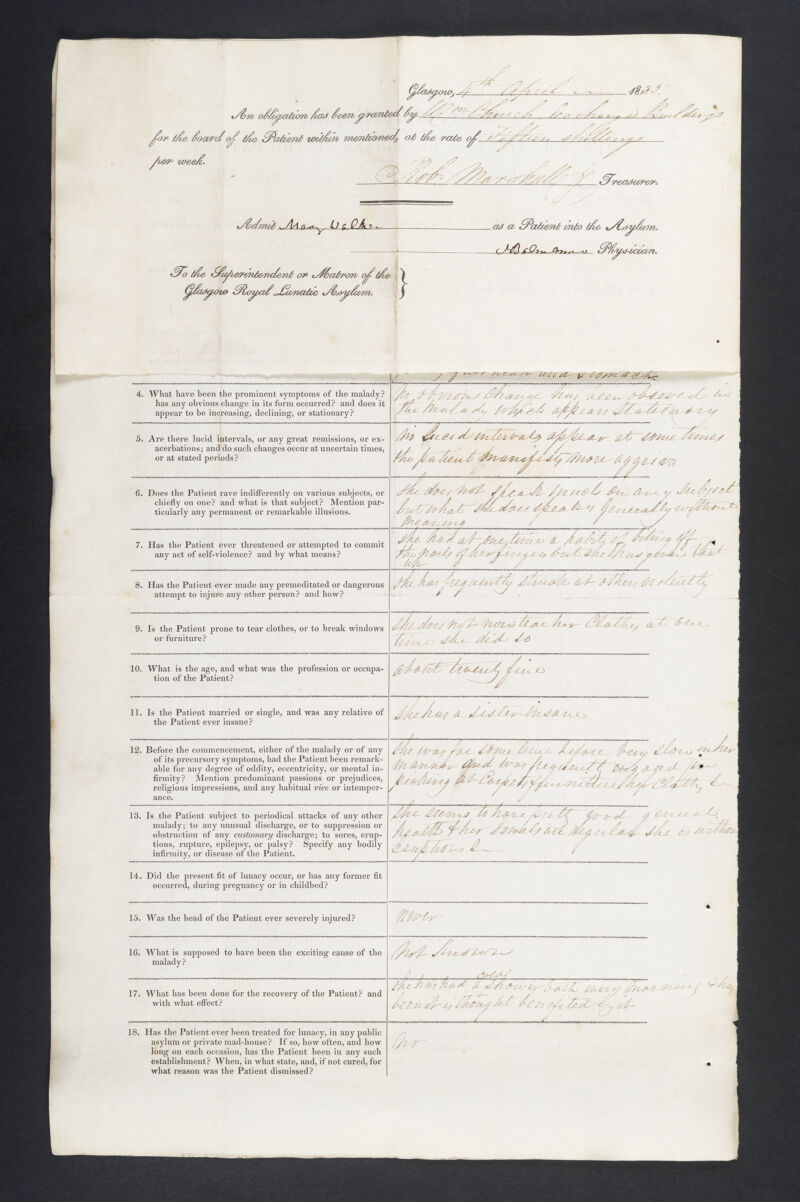 Glasgow, 4th April 1835.
An obligation has been granted by Wm Church, Exchange Buildings
for the board of the Patient within mentioned, at the rate of Fifteen shillings
per week.
Robt Marshall Treasurer.
Admit Mary Walker as a Patient into the Asylum.
Physician.
To the Superintendent or Matron of the
Glasgow Royal Lunatic Asylum.
and Stomach
4. What have been the prominent symptoms of the malady?
has any obvious change in its form occurred? and does it
appear to be increasing, declining, or stationary?
No obvious Change has been observed in
the malady which appears Stationary
5. Are there lucid intervals, or any great remissions, or ex-
acerbations; and do such changes occur at uncertain times,
or at stated periods?
No Lucid intervals appear at some times
the patient manifests more
6. Does the Patient rave indifferently on various subjects, or
chiefly on one? and what is that subject? Mention par-
ticularly any permanent or remarkable illusions.
She does not speak much on any Subject
but what she does speak is generally without
meaning
7. Has the Patient ever threatened or attempted to commit
any act of self-violence? and by what means?
She had at one time a habit of biting off
the nails of her fingers but she has given that
up
8. Has the Patient ever made any premeditated or dangerous
attempt to injure any other person? and how?
She has frequently struck at others violently
9. Is the Patient prone to tear clothes, or to break windows
or furniture?
She does not now tear her Clothes at one
time she did so
10. What is the age, and what was the profession or occupa-
tion of the Patient?
about twenty five
11. Is the Patient married or single, and was any relative of
the Patient ever insane?
She has a Sister insane
12. Before the commencement, either of the malady or of any
of its precursory symptoms, had the Patient been remark-
able for any degree of oddity, eccentricity, or mental in-
firmity? Mention predominant passions or prejudices,
religious impressions, and any habitual vice or intemper-
ance.
She was for some time before very slow in her
manner and was frequently engaged in
picking at Carpets furniture her Clothes &
13. Is the Patient subject to periodical attacks of any other
malady; to any unusual discharge, or to suppression or
obstruction of any customary discharge; to sores, erup-
tions, rupture, epilepsy, or palsy? Specify any bodily
infirmity, or disease of the Patient.
She seems to have pretty good general
health & her bowels are regular she is without
eruptions &
14. Did the present fit of lunacy occur, or has any former fit
occurred, during pregnancy or in childbed?
15. Was the head of the Patient ever severely injured?
Never
16. What is supposed to have been the exciting cause of the
malady?
Not Known
17. What has been done for the recovery of the Patient? and
with what effect?
She has had a cold Shower bath every morning & has
been it is thought benefited by it
18. Has the Patient ever been treated for lunacy, in any public
asylum or private mad-house? If so, how often, and how
long on each occasion, has the Patient been in any such
establishment? When, in what state, and, if not cured, for
what reason was the Patient dismissed?
No